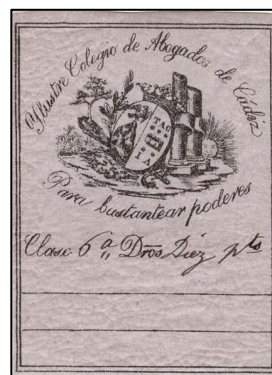 Yllustre Colegio de Abogados de Cádiz
Para bastantear poderes
Clase 6ª Dros Diez pts